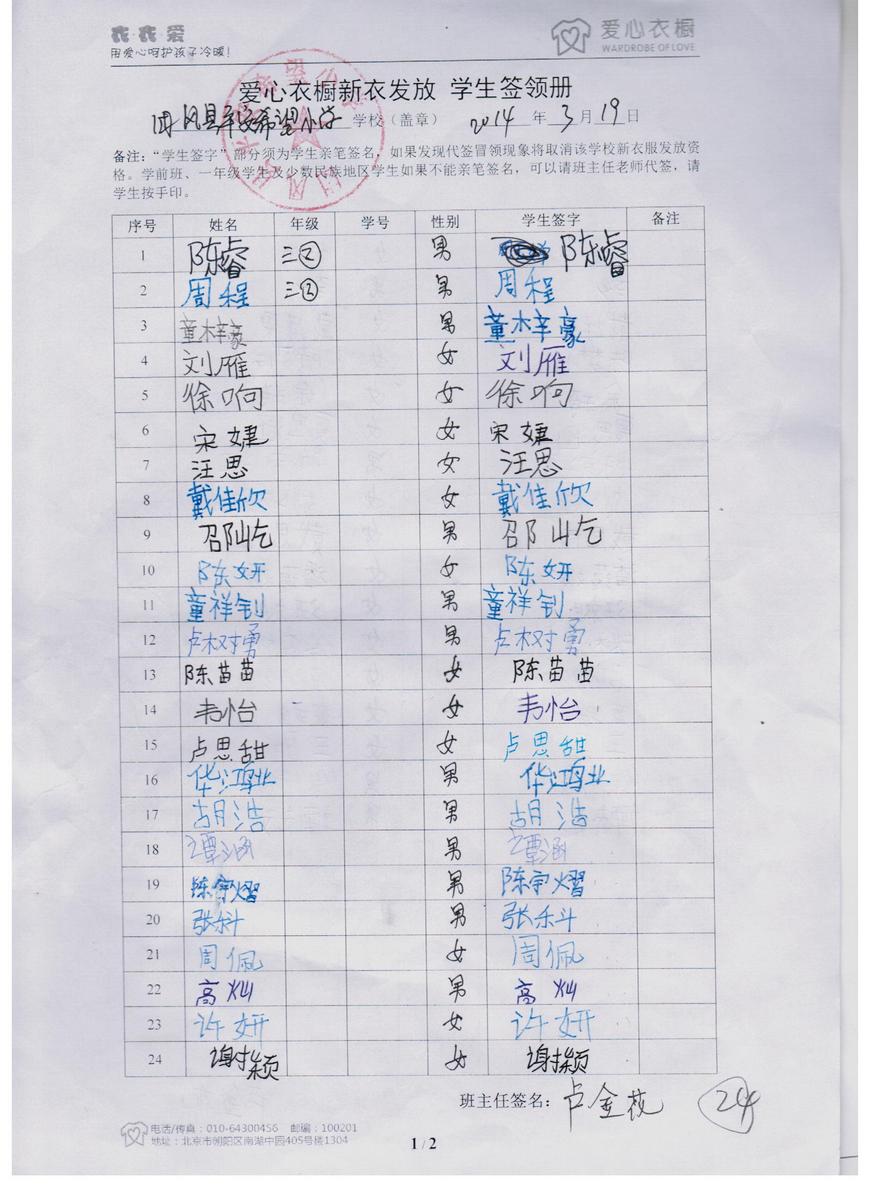 衣·衣·爱
用爱心呵护孩子冷暖！
爱心衣橱
WARDROBE OF LOVE
爱心衣橱新衣发放 学生签领册
团风县 希望小学 学校（盖章） 2014 年 3 月 19 日
备注：“学生签字”部分须为学生亲笔签名，如果发现代签冒领现象将取消该学校新衣服发放资
格。学前班、一年级学生及少数民族地区学生如果不能亲笔签名，可以请班主任老师代签，请
学生按手印。
序号 姓名 年级 学号 性别 学生签字 备注
1 陈睿 三② 男 陈睿
2 周程 三② 男 周程
3 童木辛豪 男 童木辛豪
4 刘雁 女 刘雁
5 徐响 女 徐响
6 宋婕 女 宋婕
7 汪思 女 汪思
8 戴佳欣 女 戴佳欣
9 邵屹 男 邵屹
10 陈妍 女 陈妍
11 童祥钊 男 童祥钊
12 卢树勇 男 卢树勇
13 陈苗苗 女 陈苗苗
14 韦怡 女 韦怡
15 卢思甜 女 卢思甜
16 华鸿业 男 华鸿业
17 胡浩 男 胡浩
18 谭涵 男 谭涵
19 陈宇熠 男 陈宇熠
20 张乐斗 男 张乐斗
21 周佩 女 周佩
22 高灿 男 高灿
23 许妍 女 许妍
24 谢颖 女 谢颖
班主任签名： 卢金枝 24
电话/传真：010-64300456 邮编：100201
地址：北京市朝阳区南湖中园405号楼1304
1 / 2